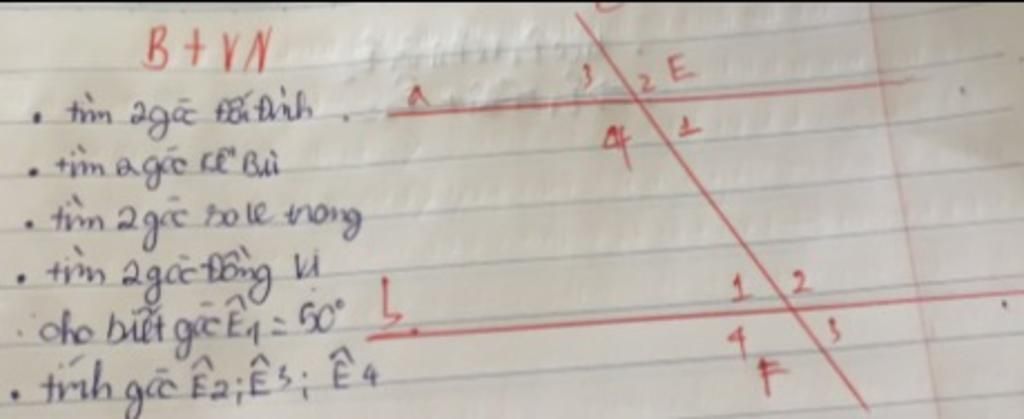 B + VN
• tìm 2 góc đối đỉnh.
• tìm 2 góc kề Bù
• tìm 2 góc so le trong
• tìm 2 góc đồng vị
. cho biết góc Ê1 = 50°
• tính góc Ê2; Ê3; Ê4
3 2 E
a
4 1
1 2
b
4 3
F